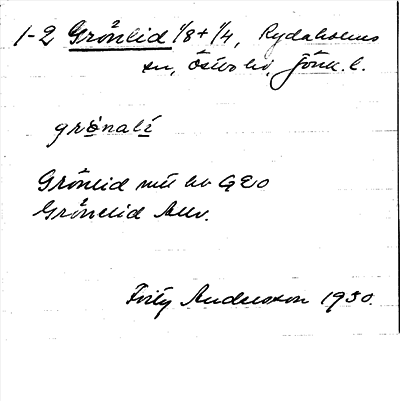 1-2 Grönlid 1/8 + 1/4, Rydaholms
sn, Östbo hd, Jönk. l.
grö̀nalí
Grönlid mtl hd GEO
Grönelid Allm.
Fritz Andersson 1930.